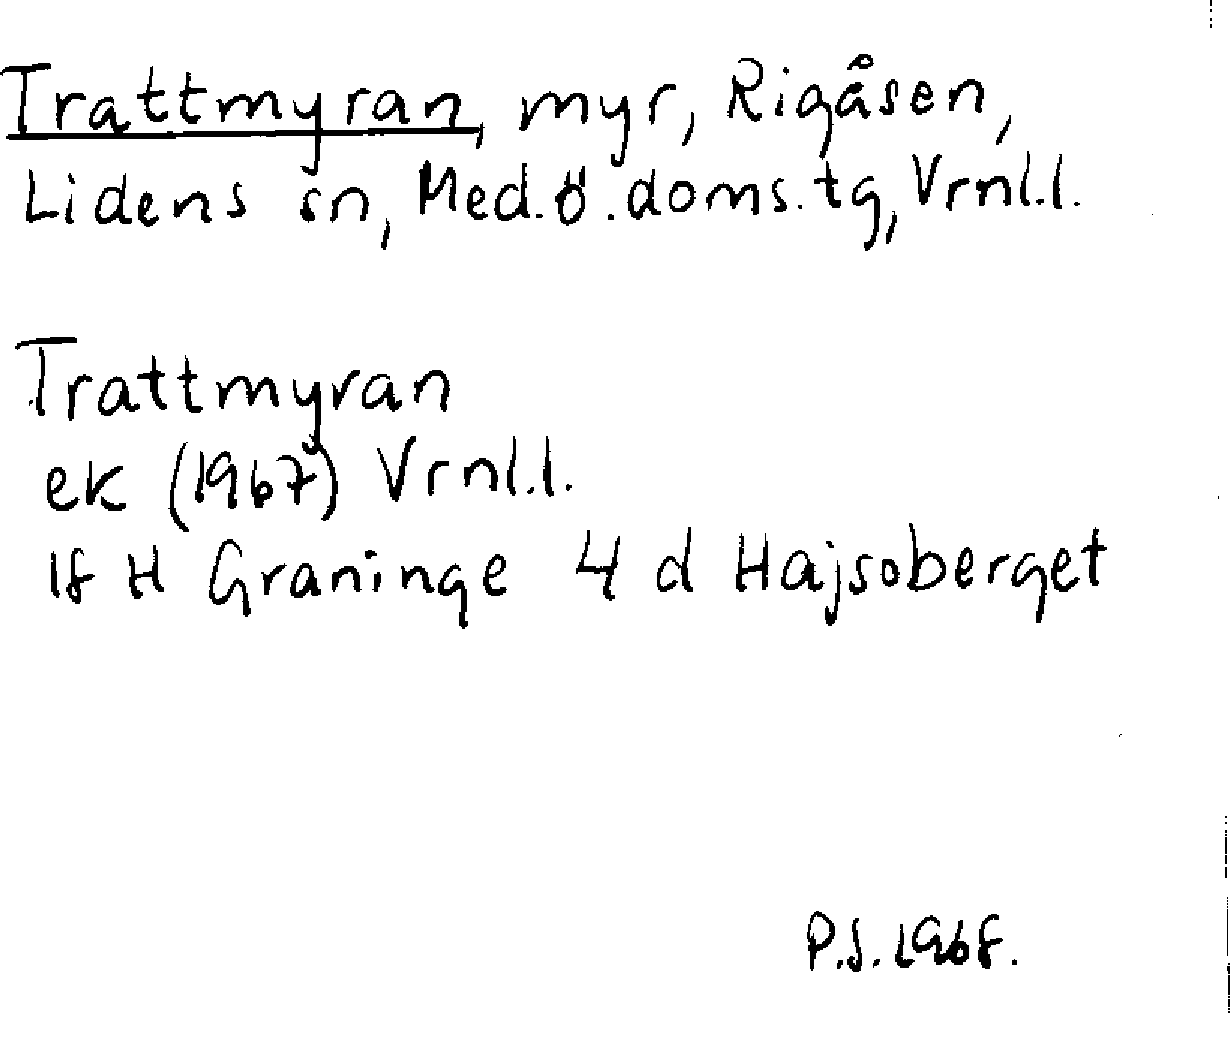 Trattmyran, myr, Rigåsen,
Lidens sn, Med. ö. doms. tg, Vrnl.l.
Trattmyran
ek (1967) Vrnl.l.
18 H Graninge 4 d Hajsoberget
P.S. 1968.